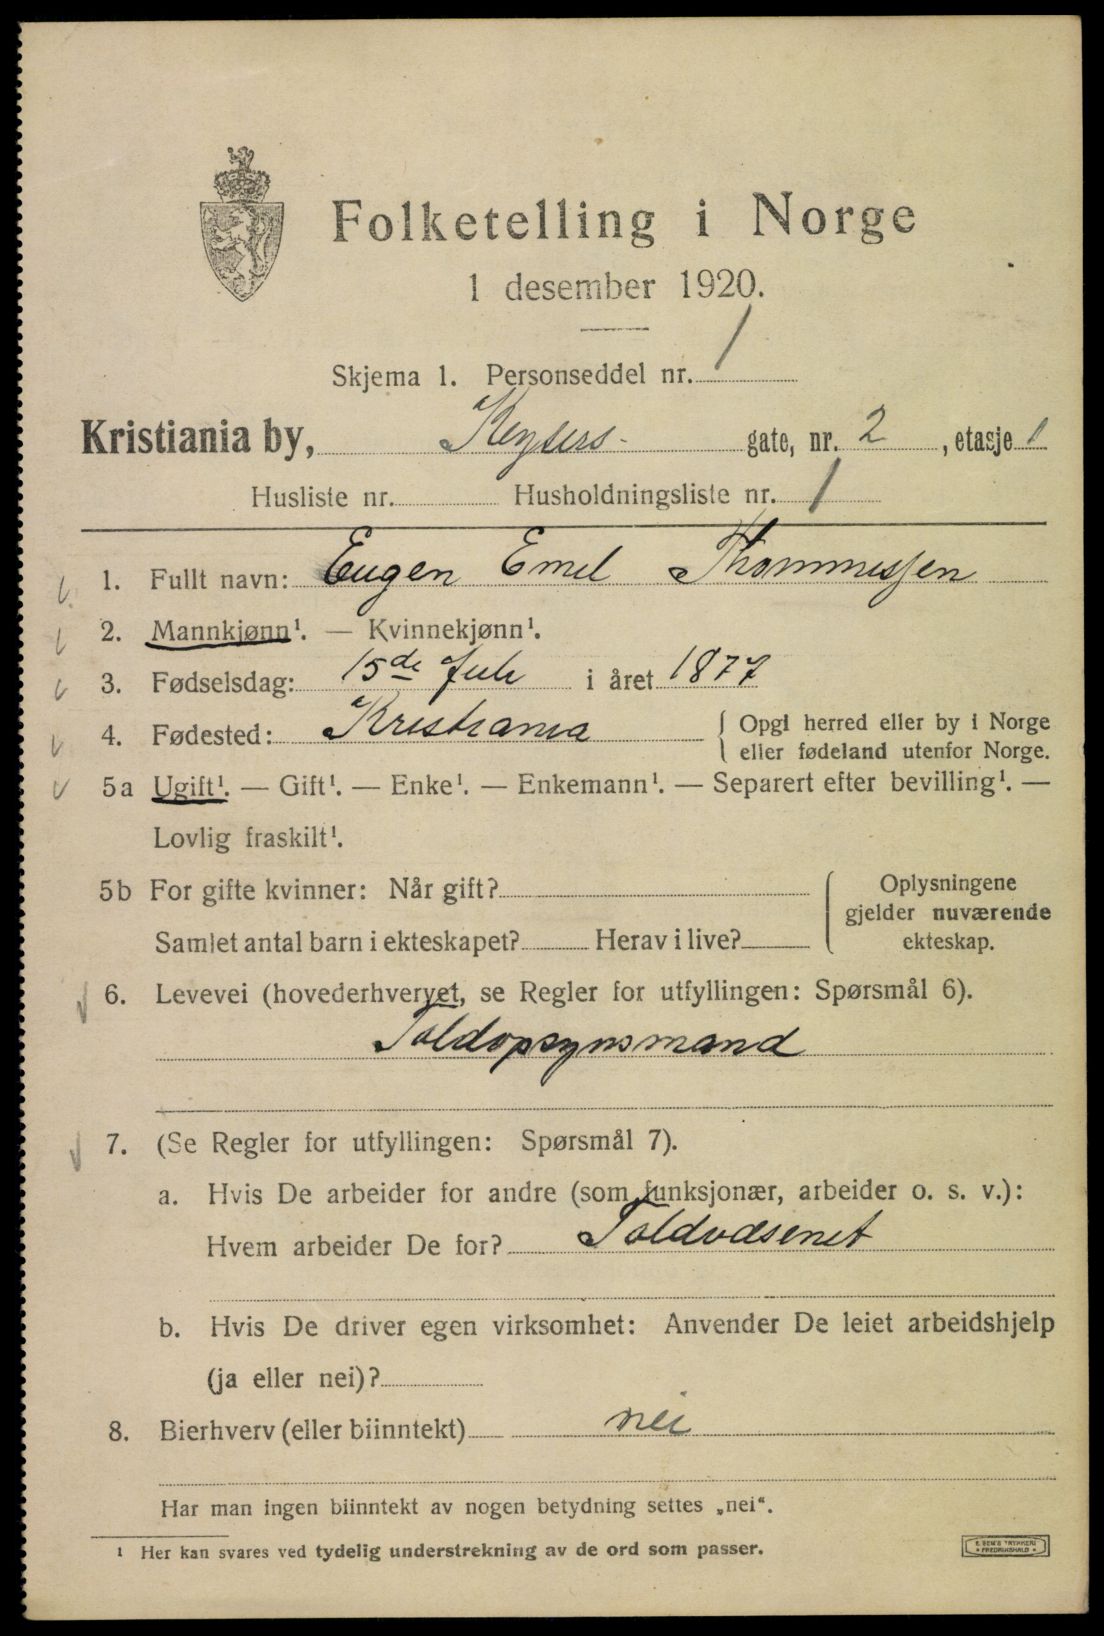 Folketelling i Norge
1 desember 1920.
Skjema 1. Personseddel nr. 1
Kristiania by, Keysers- gate, nr. 2, etasje 1
Husliste nr. Husholdningsliste nr. 1
1. Fullt navn: Eugen Emil Thommessen
2. Mannkjønn¹. — Kvinnekjønn¹.
3. Fødselsdag: 15de Juli i året 1877
4. Fødested: Kristiania { Opgi herred eller by i Norge
eller fødeland utenfor Norge.
5a Ugift¹. — Gift¹. — Enke¹. — Enkemann¹. — Separert efter bevilling¹. —
Lovlig fraskilt¹.
5b For gifte kvinner: Når gift? { Oplysningene
gjelder nuværende
Samlet antal barn i ekteskapet? Herav i live? ekteskap.
6. Levevei (hovederhvervet, se Regler for utfyllingen: Spørsmål 6).
Toldopsynsmand
7. (Se Regler for utfyllingen: Spørsmål 7).
a. Hvis De arbeider for andre (som funksjonær, arbeider o. s. v.):
Hvem arbeider De for? Toldvæsenet
b. Hvis De driver egen virksomhet: Anvender De leiet arbeidshjelp
(ja eller nei)?
8. Bierhverv (eller biinntekt) nei
Har man ingen biinntekt av nogen betydning settes „nei“.
¹ Her kan svares ved tydelig understrekning av de ord som passer.
E. SEM'S TRYKKERI
FREDRIKSHALD